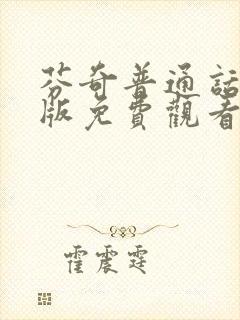 芬奇普通話
版免費觀看
霍震霆